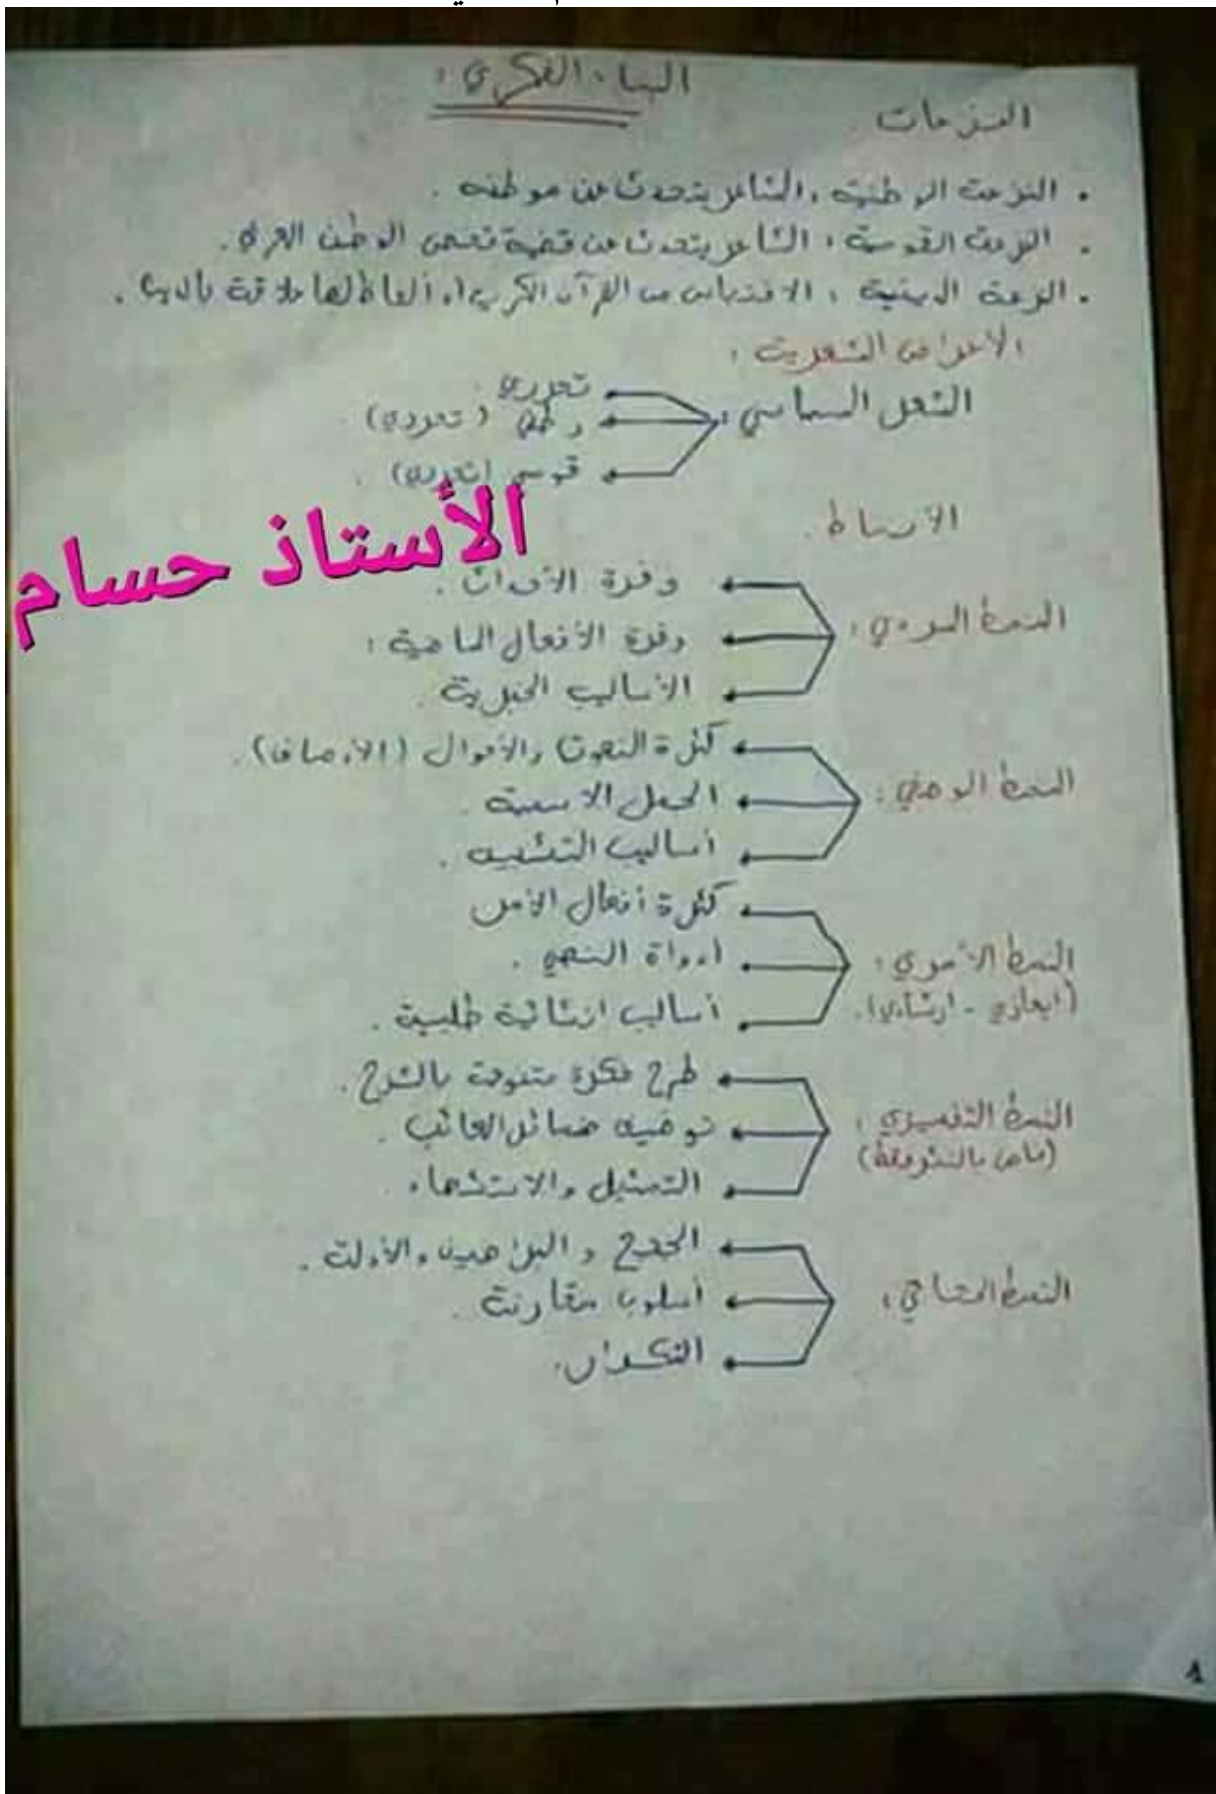 البناء الفكري :
النزعات
. النزعة الوطنية : الشاعر يتحدث عن موطنه .
. النزعة القومية : الشاعر يتحدث عن قضية تخص الوطن العربي .
. النزعة الدينية : الاقتباس من القرآن الكريم أو ألفاظ لها علاقة بالدين .
الأغراض الشعرية :
الشعر السياسي :
تحرري .
وطني (تحرري)
قومي (تحرري) .
الأستاذ حسام
الأنماط .
النمط السردي :
وفرة الأحداث .
وفرة الأفعال الماضية :
الأساليب الخبرية .
النمط الوصفي :
كثرة النعوت والأحوال (الأوصاف) .
الجمل الاسمية .
أساليب التشبيه .
النمط الأمري :
(ايعازي - ارشادي) .
كثرة أفعال الأمر
أدواة النهي .
أساليب انشائية طلبية .
النمط التفسيري :
(خاص بالنثر فقط)
طرح فكرة متبوعة بالشرح .
توضيف ضمائر الغائب .
التمثيل والاستشهاد
النمط الحجاجي :
الحجج و البراهين والأدلة .
أسلوب مقارنة .
التكرار .
1